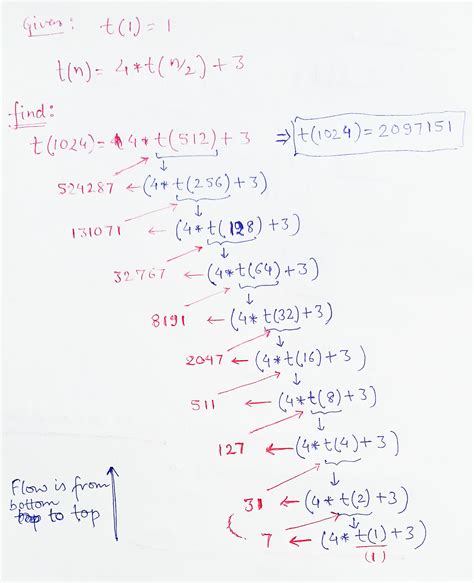 Given: t(1) = 1
t(n) = 4*t(n/2) + 3
find:
t(1024) = 4* t(512) + 3 ⇒ t(1024) = 2097151
524287 ← (4* t(256) + 3)
131071 ← (4* t(128) + 3)
32767 ← (4* t(64) + 3)
8191 ← (4* t(32) + 3)
2047 ← (4* t(16) + 3)
511 ← (4* t(8) + 3)
127 ← (4* t(4) + 3)
31 ← (4* t(2) + 3)
7 ← (4* t(1) + 3)
(1)
Flow is from
bottom
to top